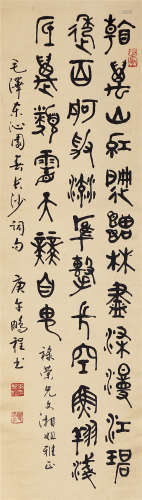 看萬山紅遍層林盡染漫江碧
透百舸爭流鷹擊長空魚翔淺
底萬類霜天競自由
榮兄文湘姐雅正
毛澤东沁園春长沙詞句 庚午鵬程书